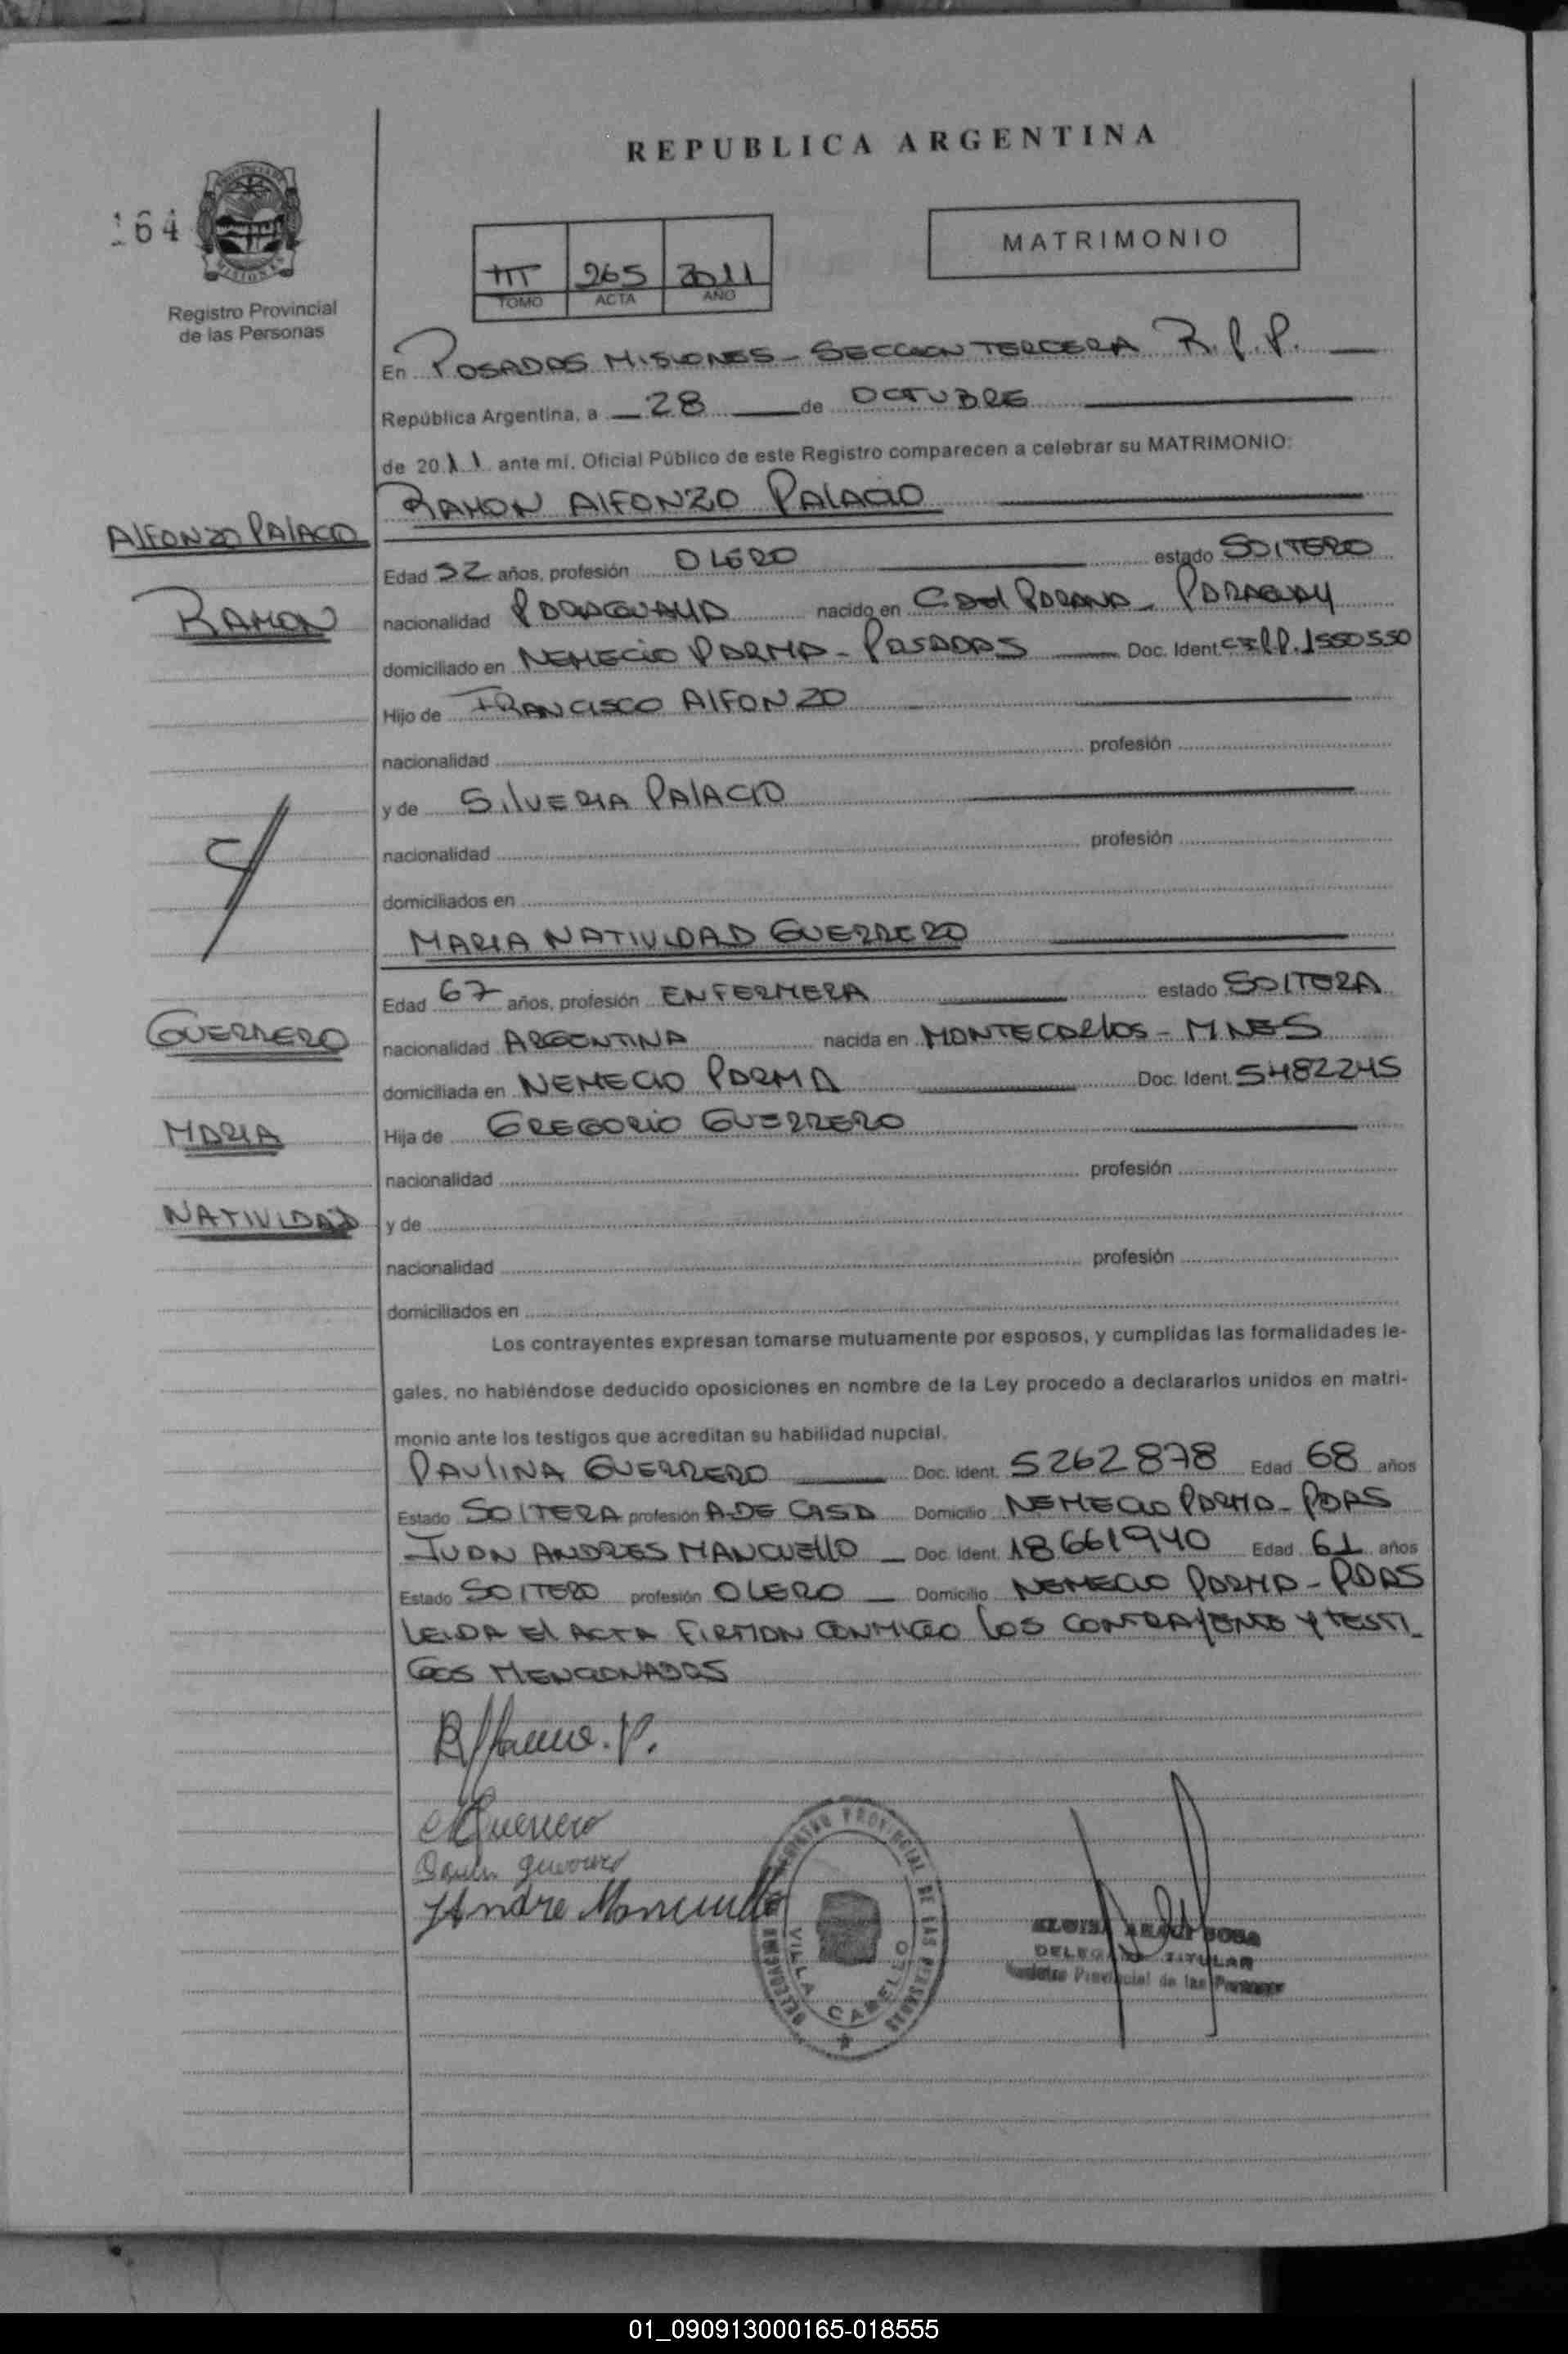 REPUBLICA ARGENTINA
164
MATRIMONIO
III 265 2011
TOMO ACTA AÑO
Registro Provincial
de las Personas
En POSADAS MISIONES - SECCION TERCERA R.P.P.
República Argentina, a 28 de OCTUBRE
de 2011 ante mí, Oficial Público de este Registro comparecen a celebrar su MATRIMONIO:
RAMON ALFONZO PALACIO
ALFONZO PALACIO
Edad 52 años, profesión OLERO estado SOLTERO
RAMON
nacionalidad PARAGUAYA nacido en PARANA - PARAGUAY
domiciliado en NEMECIO PARMA - POSADAS Doc. Ident. 1550550
Hijo de FRANCISCO ALFONZO
nacionalidad profesión
y de SILVERIA PALACIO
nacionalidad profesión
domiciliados en
MARIA NATIVIDAD GUERRERO
Edad 67 años, profesión ENFERMERA estado SOLTERA
GUERRERO
nacionalidad ARGENTINA nacida en MONTECARLOS - MNES
domiciliada en NEMECIO PARMA Doc. Ident. 5482245
MARIA
Hija de GREGORIO GUERRERO
nacionalidad profesión
NATIVIDAD
y de
nacionalidad profesión
domiciliados en
Los contrayentes expresan tomarse mutuamente por esposos, y cumplidas las formalidades le-
gales, no habiéndose deducido oposiciones en nombre de la Ley procedo a declararlos unidos en matri-
monio ante los testigos que acreditan su habilidad nupcial.
PAULINA GUERRERO Doc. Ident. 5262878 Edad 68 años
Estado SOLTERA profesión A-DE CASA Domicilio NEMECIO PARMA - PDAS
JUAN ANDRES MANCUELLO Doc. Ident. 18661940 Edad 61 años
Estado SOLTERO profesión OLERO Domicilio NEMECIO PARMA - PDAS
LEIDA EL ACTA FIRMAN CONMIGO LOS CONTRAYENTE Y TESTI-
GOS MENCIONADOS
Guerrero
REGISTRO PROVINCIAL DE LAS PERSONAS
VILLA CABELLO
SOSA
DELEGADA TITULAR
Registro Provincial de las Personas
01_090913000165-018555